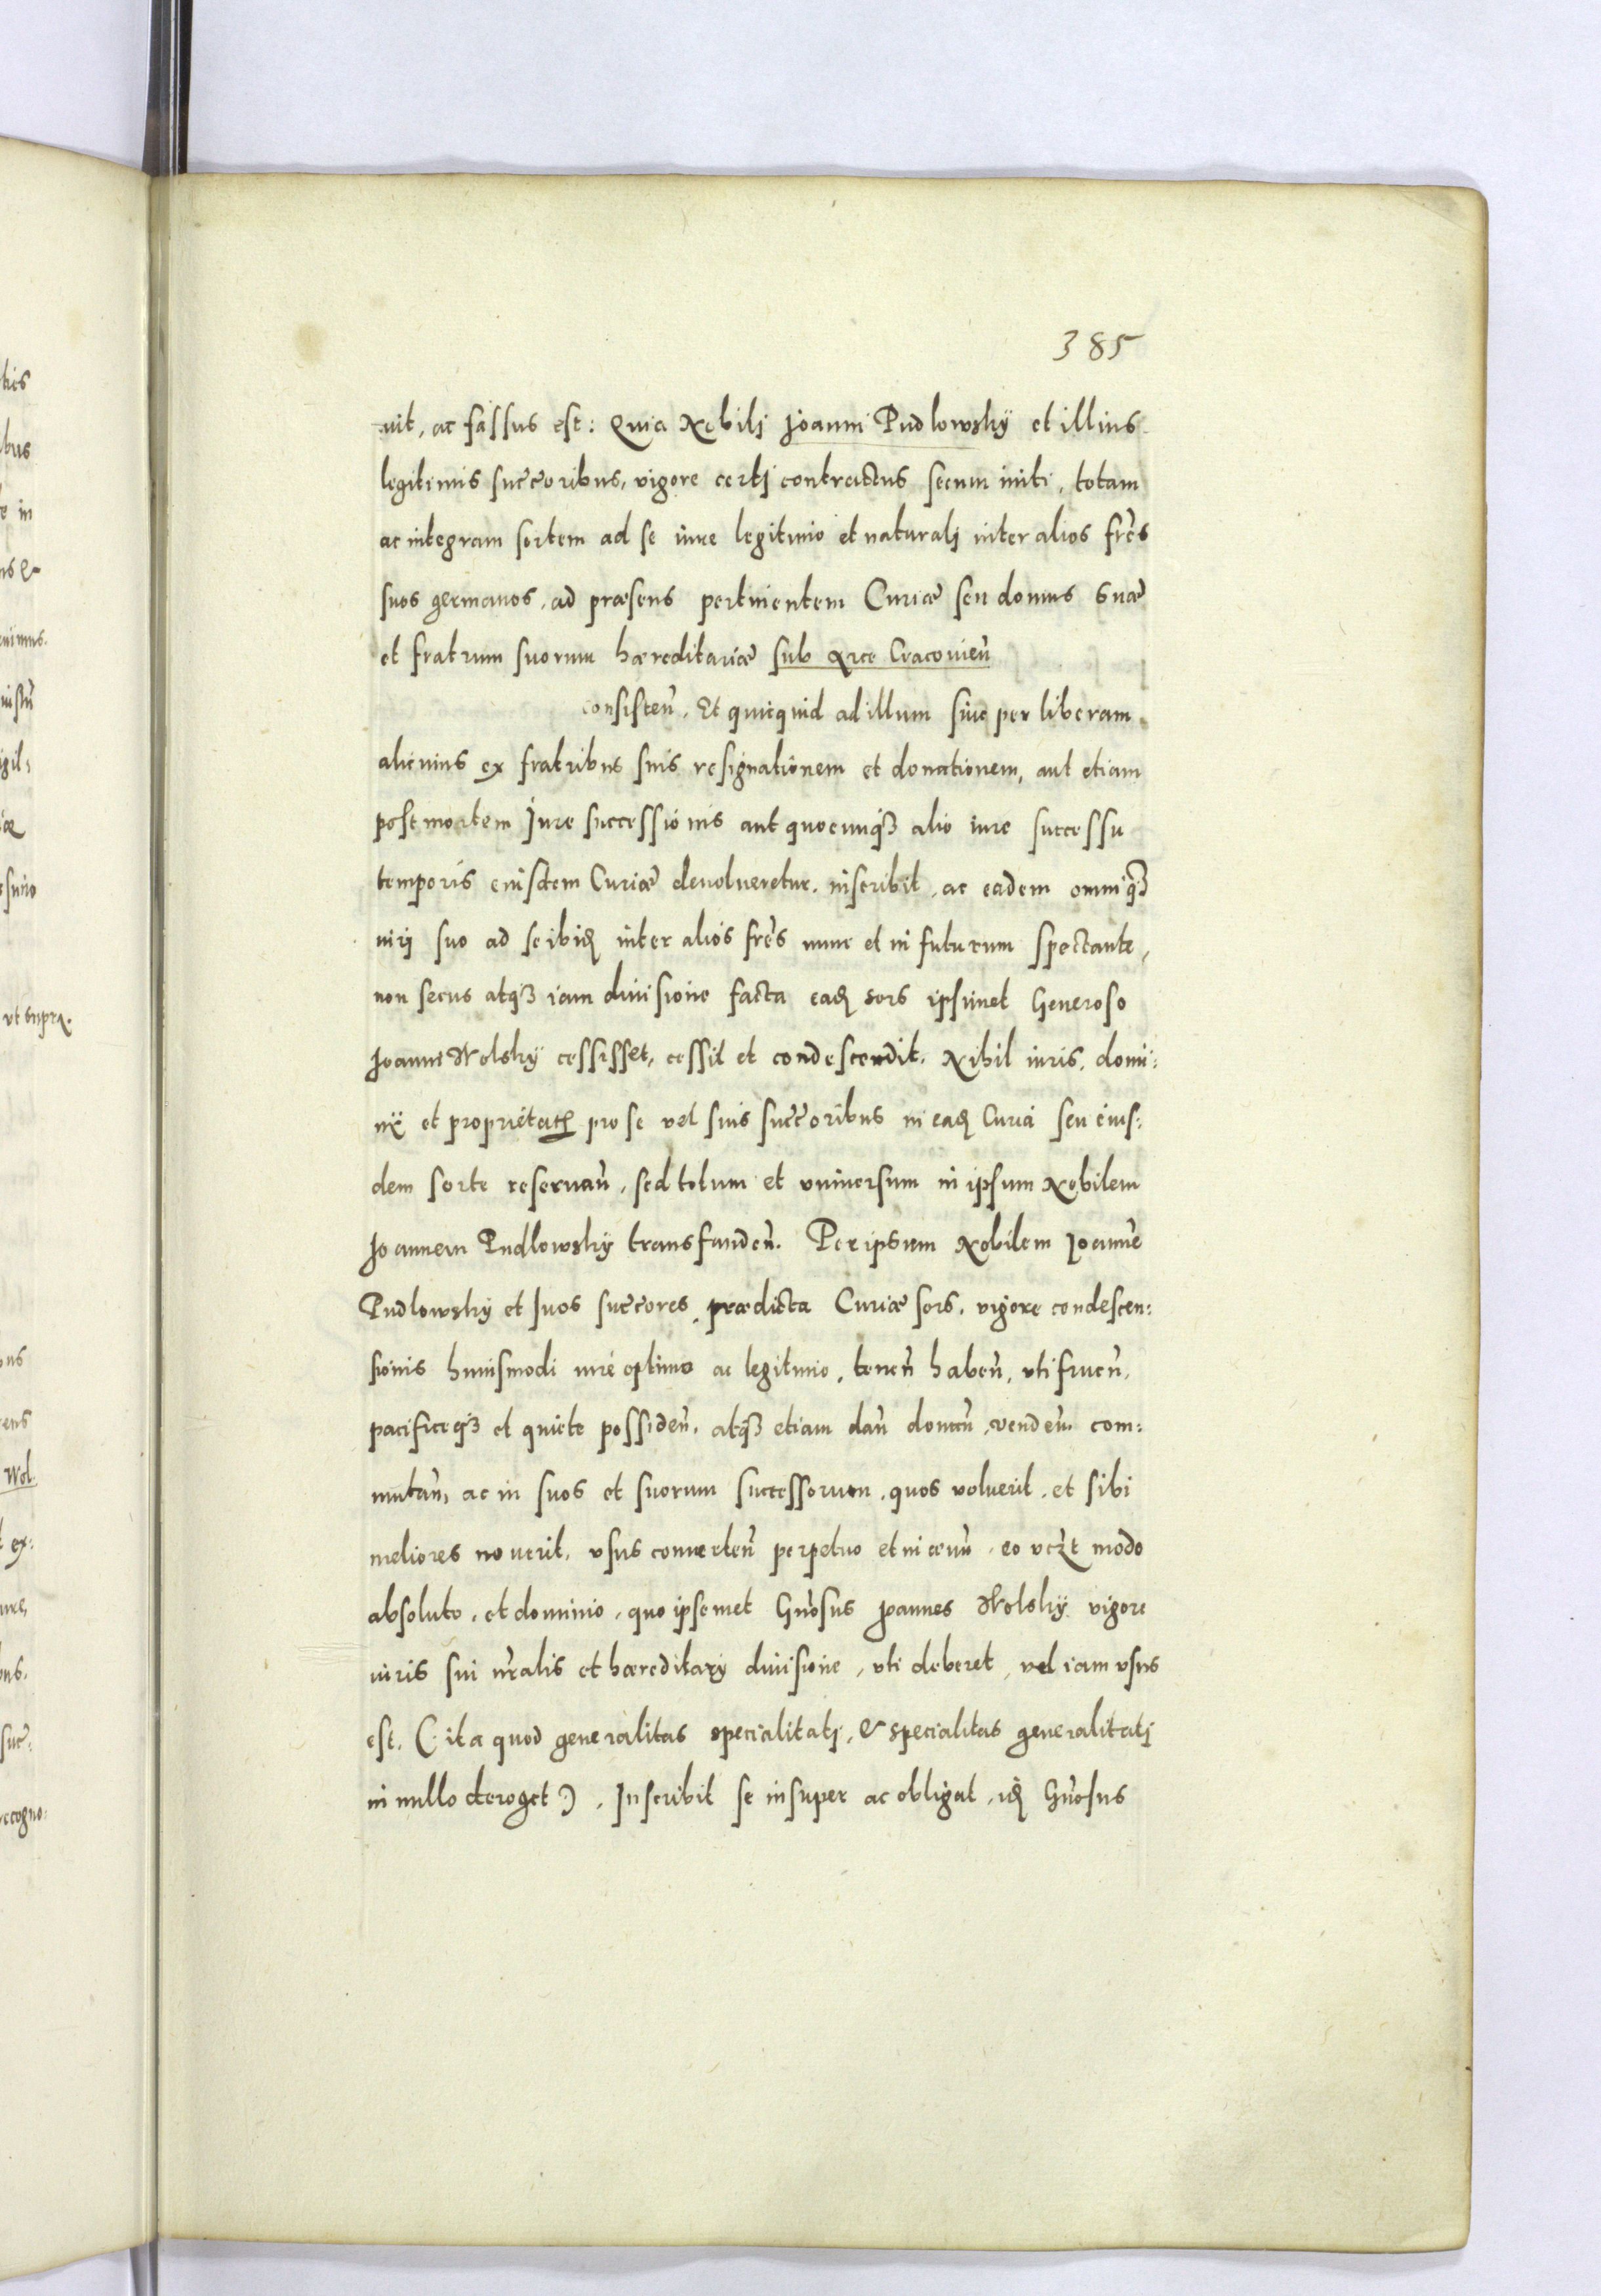 385
uit, ac fassus est: Quia Nobilj Joanni Pudlowskÿ et illius
legitimis succ̃oribus, vigore certj contractus secum initi, totam
ac integram sortem ad se iure legitimo et naturalj inter alios fr̃es
suos germanos, ad præsens pertinentem Curiæ seu domus suæ
et fratrum suorum hæreditariæ sub Arce Cracovień
consisteñ. Et quicquid ad illum siue per liberam
alicuius ex fratribus suis resignationem et donationem, aut etiam
post mortem Jure successionis aut quocunqꝫ alio iure successu
temporis eiusdem Curiæ deuolueretur. inscribit, ac eadem omniqꝫ
iurj suo ad se ibiđ inter alios fr̃es nunc et in futurum spectante,
non secus atqꝫ iam diuisione facta eađ sors ipsimet Generoso
Joanni Wolskÿ cessisset, cessit et condescendit. Nihil iuris, domi:
nÿ et proprietatꝭ pro se vel suis succ̃oribus in eađ Curia seu eius:
dem sorte reseruañ, sed totum et vniuersum in ipsum Nobilem
Joannem Pudlowskÿ transfundeñ. Per ipsum Nobilem Joannẽ
Pudlowskÿ et suos succ̃ores, prædicta Curiæ sors, vigore condescen:
sionis huiusmodi iure optimo ac legitimo, teneñ habeñ, vti frueñ,
pacificeqꝫ et quiete possideñ, atqꝫ etiam dañ donañ, vendeñ com:
mutañ, ac in suos et suorum successorum, quos voluerit, et sibi
meliores nouerit, vsus conuerteñ perpetuo et in æuũ, eo vczt modo
absoluto, et dominio, quo ipsemet Gñosus Joannes Wolskÿ vigore
iuris sui nr̃alis et hæreditarÿ diuisione, vti deberet, vel iam vsus
est. (: ita quod generalitas specialitatj, & specialitas generalitatj
in nullo deroget :). Inscribit se insuper ac obligat, iđ Gñosus